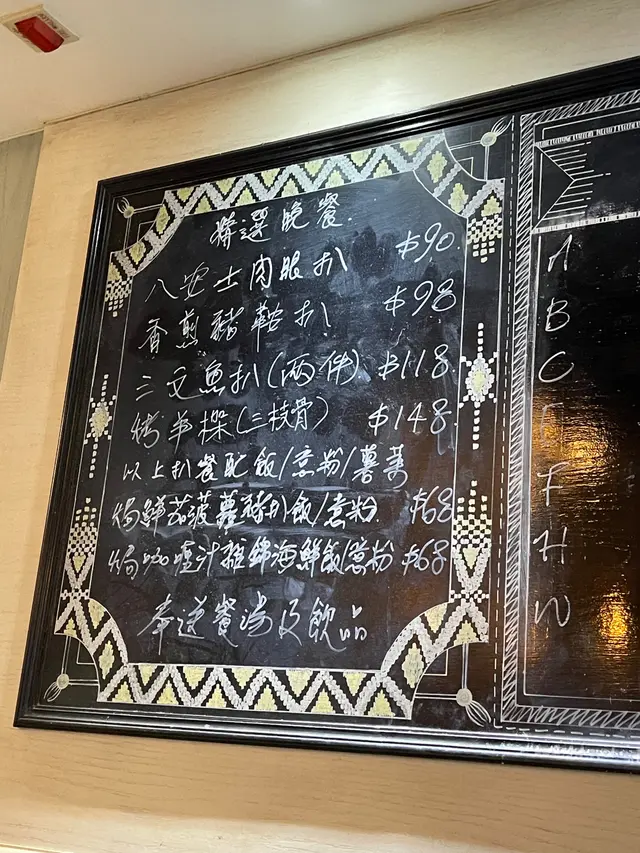 精選晚餐
八安士肉眼扒 $90
香煎豬鞍扒 $98
三文魚扒(兩件) $118
烤羊排(三枝骨) $148
以上扒餐配飯/意粉/薯菜
焗鮮茄菠蘿豬扒飯/意粉 $68
焗咖喱汁雜錦海鮮飯/意粉 $68
奉送餐湯及飲品
A
B
C
E
F
H
N